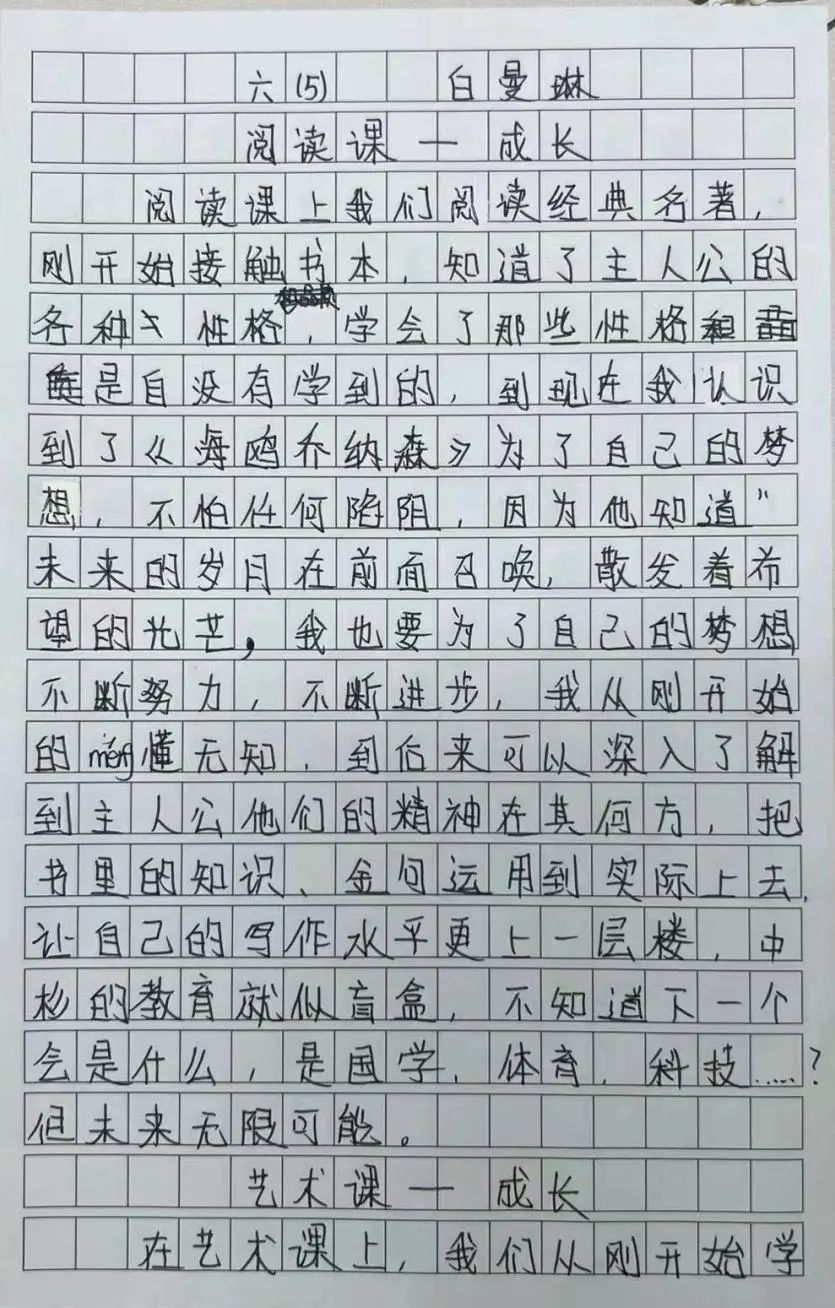 六(5) 白曼琳
阅读课一成长
阅读课上我们阅读经典名著，
刚开始接触书本，知道了主人公的
各种性格，学会了那些性格
是自没有学到的，到现在我认识
到了《海鸥乔纳森》为了自己的梦
想，不怕任何陷阻，因为他知道”
未来的岁月在前面召唤，散发着布
望的光芒，我也要为了自己的梦想
不断努力，不断进步，我从刚开始
的měng懂无知，到后来可以深入了解
到主人公他们的精神在其何方，把
书里的知识、金句运用到实际上去，
让自己的写作水平更上一层楼，中
杉的教育就似盲盒，不知道下一个
会是什么，是国学，体育，科技……？
但未来无限可能。
艺术课一成长
在艺术课上，我们从刚开始学